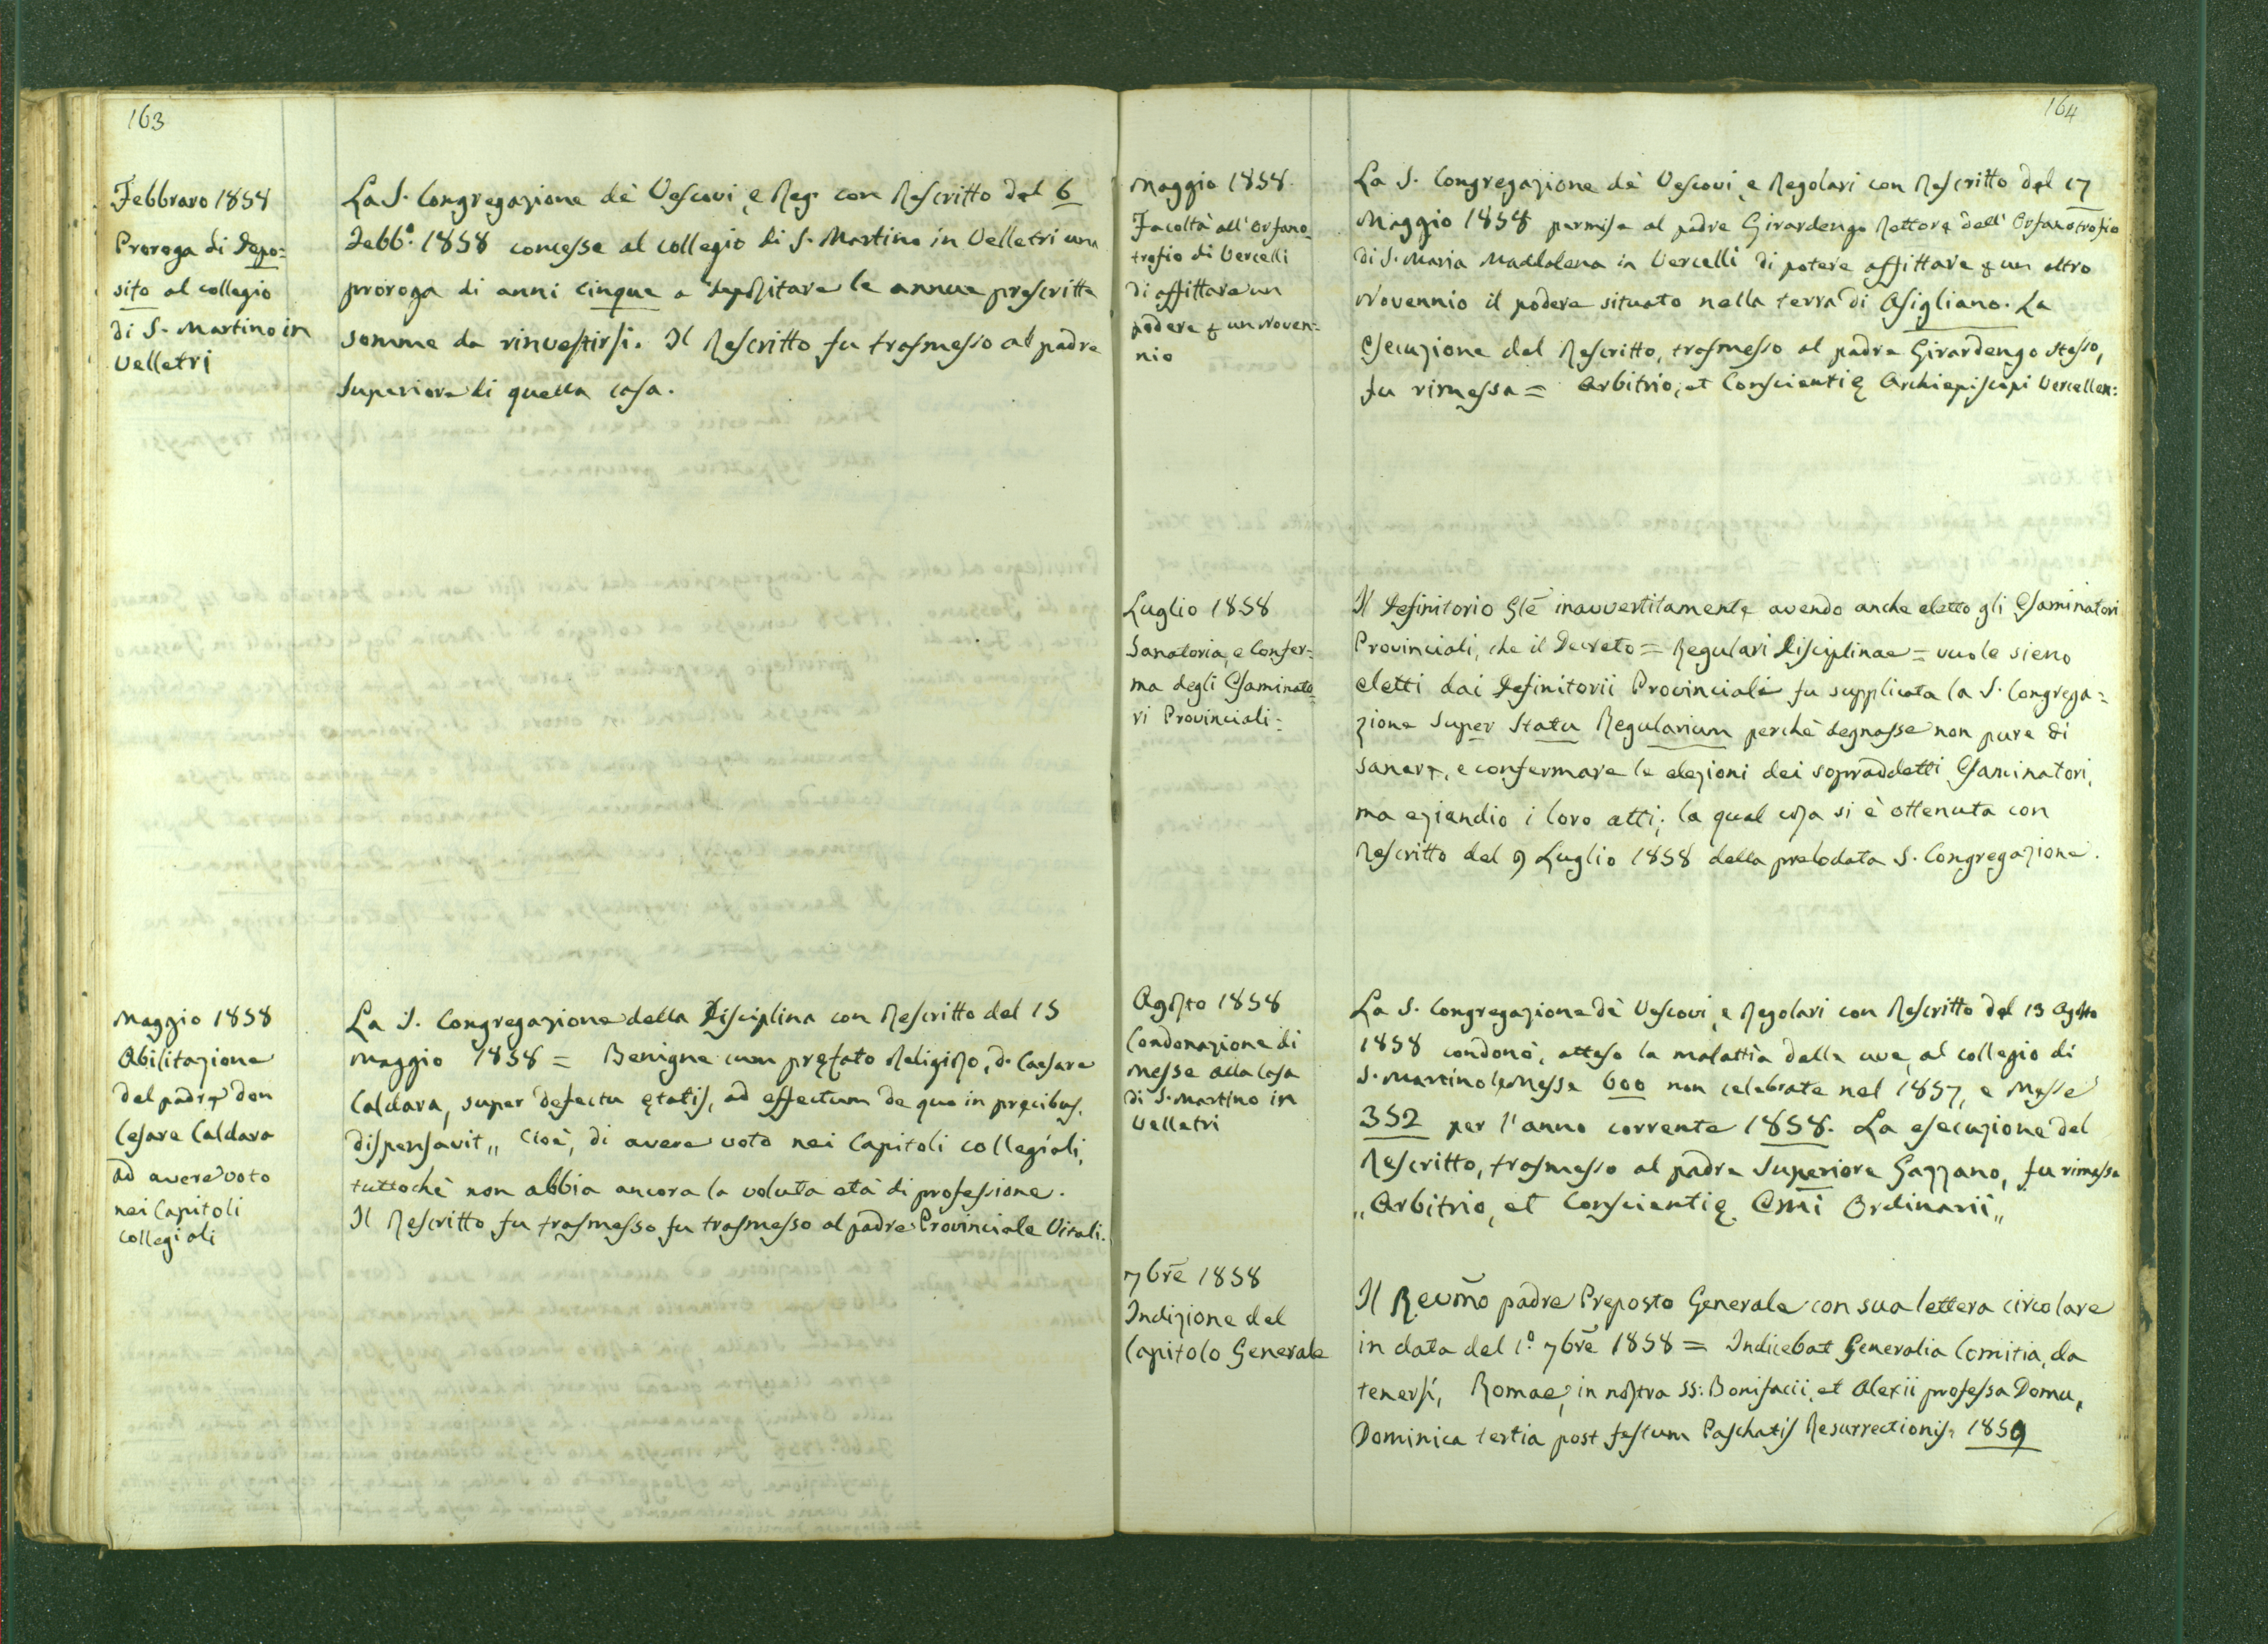 163
Febbraro 1858
Proroga di depo=
sito al collegio
di S. Martino in
Velletri
La S. Congregazione de' Vescovi, e Reg. con Rescritto del 6
Febb.º 1858 concesse al collegio di S. Martino in Velletri una
proroga di anni cinque a depositare le annue prescritte
somme da rinvestirsi. Il Rescritto fu trasmesso al padre
Superiore di quella casa.
Maggio 1858
Abilitazione
del padre don
Cesare Caldara
ad avere voto
nei Capitoli
collegiali
La S. Congregazione della Disciplina con Rescritto del 15
Maggio 1858 = Benigne cum pręfato Religioso, d. Caesare
Caldara, super defectu ętatis, ad effectum de quo in pręcibus,
dispensavit „ Cioè, di avere voto nei Capitoli collegiali,
tuttochè non abbia ancora la voluta età di professione.
Il Rescritto fu trasmesso fu trasmesso al padre Provinciale Vitali.
164
Maggio 1858.
Facoltà all'Orfano=
trofio di Vercelli
di affittare un
podere p un Noven=
nio
La S. Congregazione de' Vescovi, e Regolari con Rescritto del 17
Maggio 1858 permise al padre Girardengo Rettore dell'Orfanotrofio
di S. Maria Maddalena in Vercelli di potere affittare p un altro
Novennio il podere situato nella terra di Asigliano. La
esecuzione del Rescritto, trasmesso al padre Girardengo stesso,
fu rimessa = Arbitrio, et Conscientię Archiepiscopi Vercellen:
Luglio 1858
Sanatoria, e Confer=
ma degli Esaminato=
ri Provinciali=
Il Definitorio Gl̃e inavvertitamente avendo anche eletto gli Esaminatori
Provinciali, che il Decreto = Regulari Disciplinae = vuole sieno
eletti dai Definitorii Provinciali fu supplicata la S. Congrega=
zione Super Statu Regularium perchè degnasse non pure di
sanare, e confermare le elezioni dei sopraddetti Esaminatori,
ma eziandio i loro atti; la qual cosa si è ottenuta con
Rescritto del 9 Luglio 1858 della prelodata S. Congregazione.
Agosto 1858
Condonazione di
Messe alla Casa
di S. Martino in
Velletri
La S. Congregazione de' Vescovi, e Regolari con Rescritto del 13 Agosto
1858 condonò, atteso la malattia delle uve, al collegio di
S. Martino le Messe 600 non celebrate nel 1857, e Messe
352 per l'anno corrente 1858. La esecuzione del
Rescritto, trasmesso al padre Superiore Gazzano, fu rimessa
„ Arbitrio, et Conscientię Em̃i Ordinarii „
7bre 1858
Indizione del
Capitolo Generale
Il Revm̃o padre Preposto Generale con sua lettera circolare
in data del 1.º 7bre 1858 = Indicebat Generalia Comitia, da
tenersi, Romae, in nostra SS: Bonifacii, et Alexii professa Domu,
Dominica tertia post festum Paschatis Resurrectionis, 1859